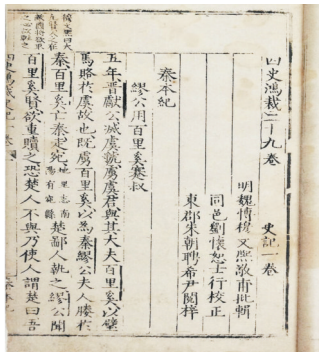 四史鴻裁二十九卷　史記一卷
明魏博穆文熙敬甫批輯
同邑劉懷恕士行校正
東郡朱朝聘希尹閱梓
秦本紀
繆公用百里奚蹇叔
五年晉獻公滅虞虢虜虞君與其大夫百里奚以璧
馬賂於虞故也既虜百里奚以為秦繆公夫人媵於
秦百里奚亡秦走宛地里志南陽有宛縣楚鄙人執之繆公聞
百里奚賢欲重贖之恐楚人不與乃使人謂楚曰吾